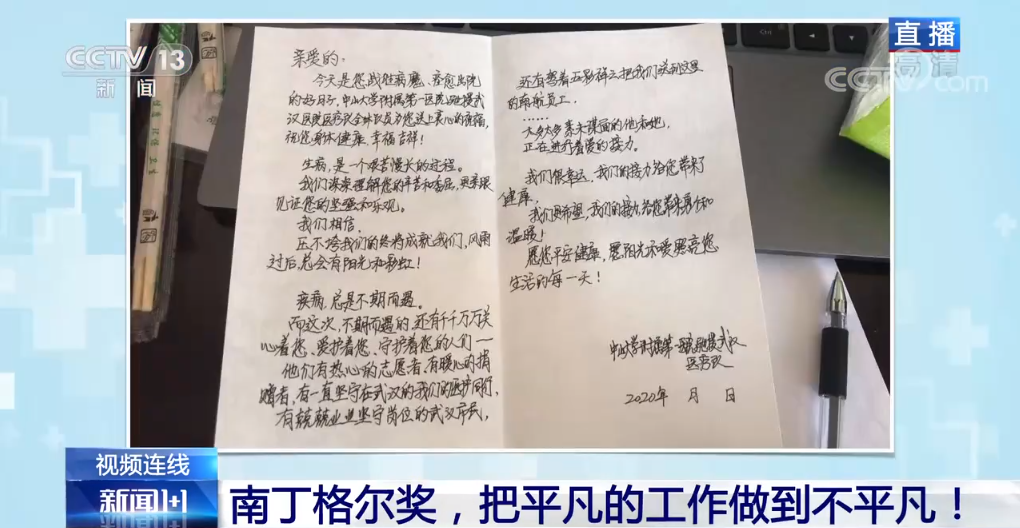 CCTV 13
新闻
直播
高清
CCTV.com
亲爱的:
今天是您战胜病魔、痊愈出院
的好日子,中山大学附属第一医院驰援武
汉医院医疗队全体队员为您送上衷心的祝福,
祝您身体健康、幸福吉祥!
生病,是一个艰苦漫长的过程。
我们深深理解您的辛苦和委屈,更亲眼
见证您的坚强和乐观。
我们相信,
压不垮我们的终将成就我们,风雨
过后,总会有阳光和彩虹!
疾病,总是不期而遇。
而这次,不期而遇的,还有千千万万关
心着您、爱护着您、守护着您的人们—
他们有热心的志愿者,有暖心的捐
赠者,有一直坚守在武汉的我们的医护同行,
有兢兢业业坚守岗位的武汉市民,
还有驾着五彩祥云把我们送到这里
的商航员工,
……
太多太多素未谋面的他和她,
正在进行着爱的接力。
我们很幸运,我们的接力给您带来了
健康,
我们更希望,我们的接力,给您带来勇气和
温暖!
愿您平安健康,愿阳光和爱照亮您
生活的每一天!
中山大学附属第一医院驰援武汉
医疗队
2020年 月 日
视频连线
新闻1+1
南丁格尔奖,把平凡的工作做到不平凡!